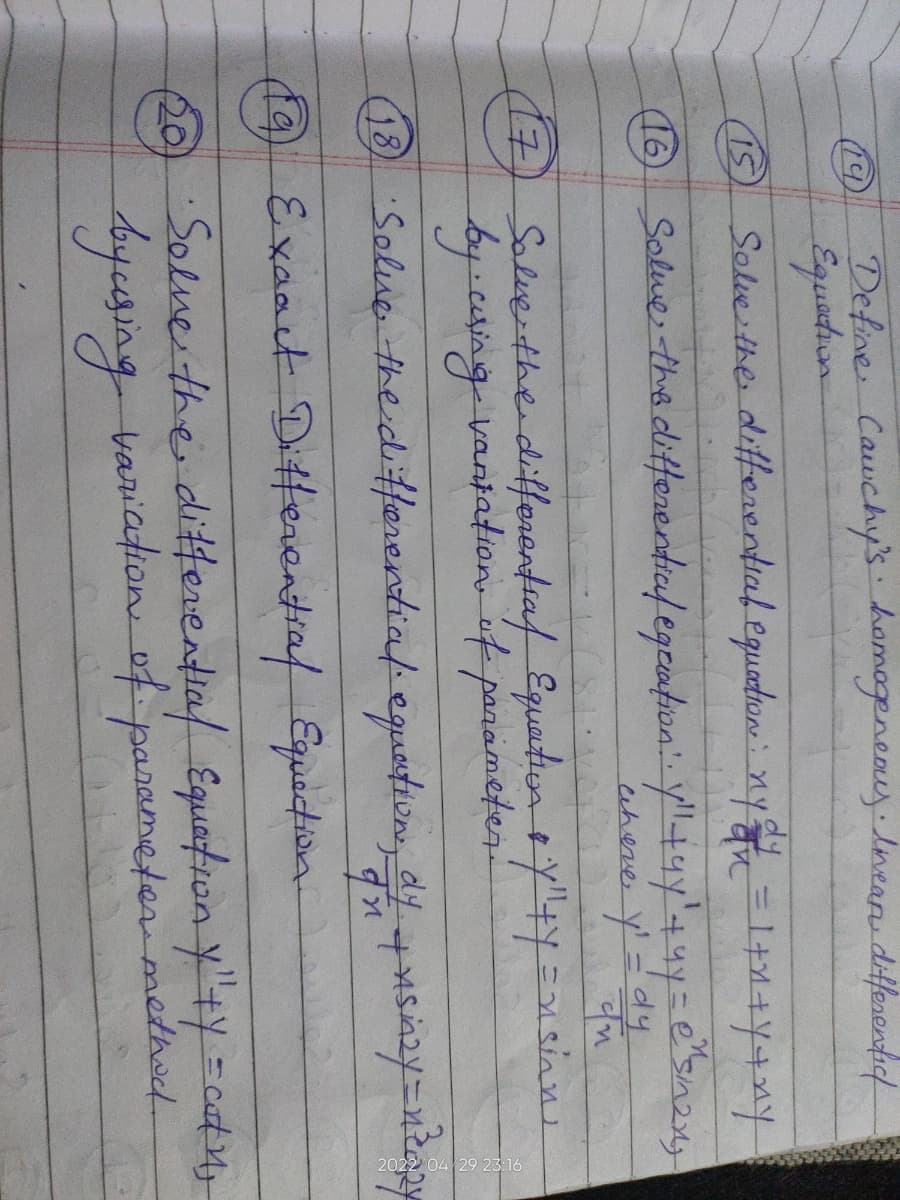 (14) Define Cauchy's homogeneous linear differential
Equation
(15) Solve the differential equation: xy dy/dx = 1+x+y+xy
(16) Solve the differential equation: y''+4y'+4y = e^x sin2x,
where y' = dy/dx
(17) Solve the differential Equation y''+y = x sinx,
by using variation of parameter.
(18) Solve the differential equation, dy/dx + x sin2y = x³cos²y
(19) Exaact Differential Equation
(20) Solve the differential Equation y''+y = cot x,
by using variation of parameter method.
2022/04/29 23:16